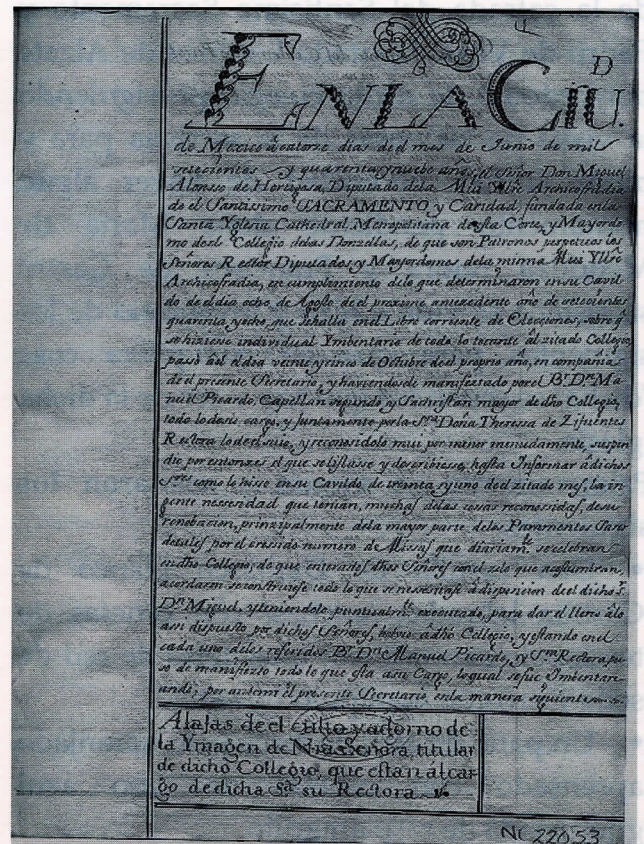 EN LA CIU.D
de Mexico à catorze dias de el mes de Junio de mil
setecientos y quarenta y nuebe años, el Señor Don Miguel
Alonso de Hortigosa, Diputado dela Mui Yllre Archicofradia
de el Santissimo SACRAMENTO, y Caridad, fundada en la
Santa Yglesia Cathedral Metropolitana de esta Corte, y Mayordo
mo de el Collegio delas Donzellas, de que son Patronos perpetuos los
Señores Rector Diputados, y Mayordomos dela misma Mui Yllre
Archicofradia, en cumplimiento de lo que determinaron en su Cavil
do de el dia ocho de Agosto de el proximo antecedente año de setecientos
quarenta, y ocho, que se halla en el Libro corriente de Elecciones, sobre q
se hiziese individual Ymbentario de todo lo tocante al zitado Collegio,
passò à èl el dia veinte y sinco de Octubre de el proprio año, en compañia
de el presente Secretario, y haviendosele manifestado por el Br. Dn. Ma
nuel Picardo, Capellàn segundo, y Sachristàn mayor de dho Collegio,
todo lo de su cargo, y juntamente por la Sra. Doña Theressa de Zifuentes
Rectora lo de el suio, y reconosidolo mui por menor menudamente, suspen
diò por entonzes el que se listasse y describiesse, hasta Informar à dichos
Sres. como lo hisso en su Cavildo de treinta y uno de el zitado mes, la in
gente nessesidad que tenian, muchas delas cosas reconosidas, de su
renobacion, prinzipalmente dela mayor parte delos Paramentos Sacer
dotales por el cressido numero de Missas que diariamte. se celebran
en dho Collegio, de que enterados dhos Señores con el zelo que acostumbran
acordaron se construiese todo lo que se nessesitase à disposicion de el dicho Sr.
Dn. Miguel, y teniendolo puntualmte. executado, para dar el lleno à lo
assi dispuesto por dichos Señores, bolviò a dho Collegio, y estando en el
cada uno delos referidos Br. Dn. Manuel Picardo, y Sra. Rectora, pu
so de manifiesto todo lo que esta a su Cargo, lo qual se fue Imbentari
ando, por ante mi el presente Secretario en la manera siguiente
Alajas de el culto y adorno de
la Ymagen de Nra. Señora, titular
de dicho Collegio, que estan al car
go de dicha Sa. su Rectora
22053